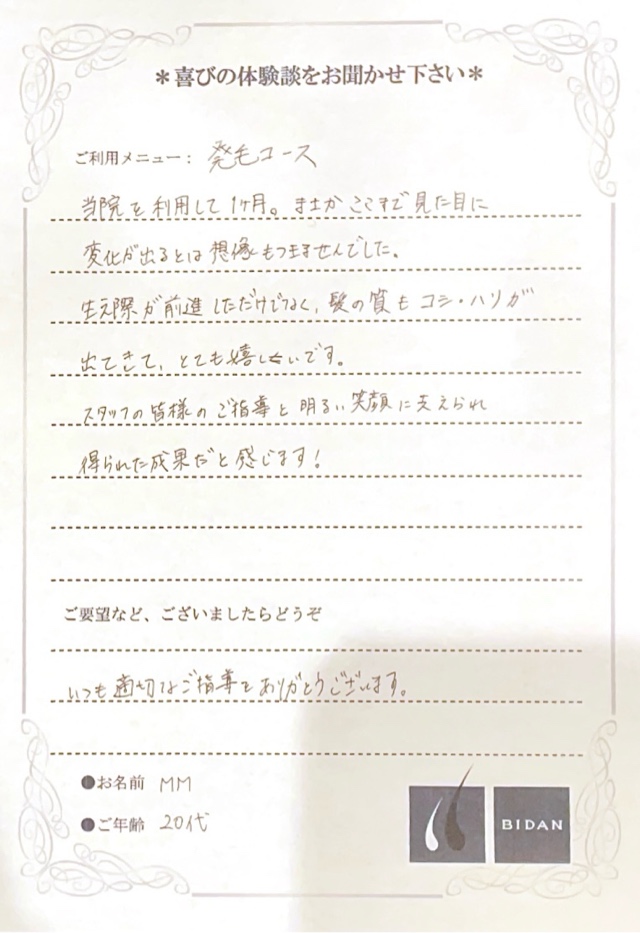 ＊喜びの体験談をお聞かせ下さい＊
ご利用メニュー： 発毛コース
当院を利用して1ヶ月。まさかここまで見た目に
変化が出るとは想像もつきませんでした。
生え際が前進しただけでなく、髪の質もコシ・ハリが
出てきて、とても嬉しいです。
スタッフの皆様のご指導と明るい笑顔に支えられ
得られた成果だと感じます！
ご要望など、ございましたらどうぞ
いつも適切なご指導をありがとうございます。
●お名前 MM
●ご年齢 20代
BIDAN